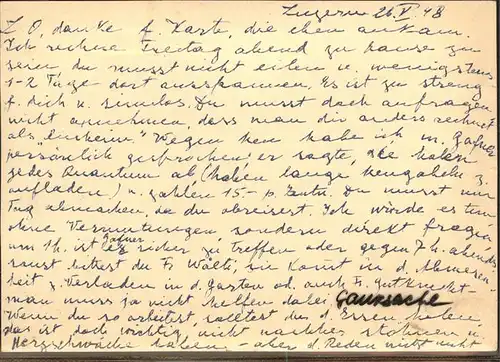 Luzern 26.V.48
L O, danke f. Karte, die eben ankam.
Ich rechne Freitag abend zu hause zu
sein du musst nicht eilen u. wenigstens
1-2 Tage dort ausspannen. Es ist zu streng
f. dich u. sinnlos. Du musst doch anfragen
nicht annehmen, dass man dir anders rechnet
als "einheim." Wegen habe ich m. Gafner
persönlich gesprochen er sagte, sie holen
jedes Quantum ab (haben lange z.
aufladen) u. zahlen 15.- p. Zentn. Du musst nur
Tag abmachen, da du abreisest. Ich würde es tun
ohne Vermutungen sondern direkt fragen
um 1h. ist er Gafner sicher zu treffen oder gegen 7h. abends
sonst bittest du Fr Wälti, sie kommt in d. Abwesen-
heit z. Verladen in d. Garten od. auch Fr. Gutknecht
man muss ja nicht helfen dabei
Wenn du so arbeitest, solltest du d. Essen holen,
das ist doch wichtig, nicht nachher stöhnen u.
Herzschwäche haben - aber d. Reden nützt nicht